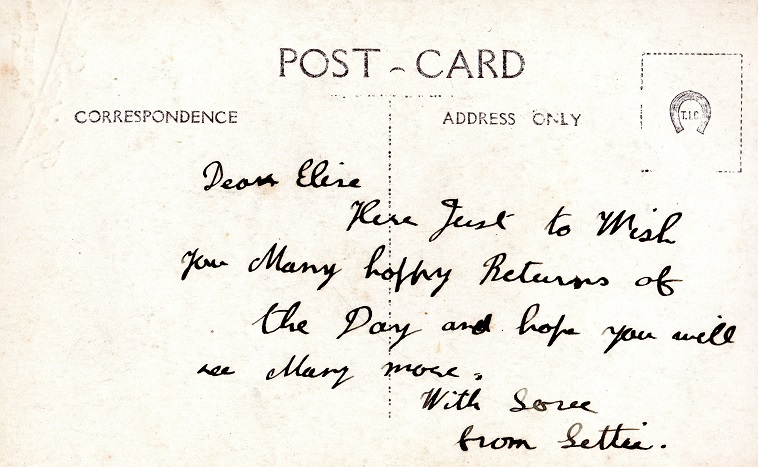 POST - CARD
CORRESPONDENCE
ADDRESS ONLY
T.I.C.
Dear Elise
Here Just to Wish
You Many happy Returns of
the Day and hope you will
see Many more.
With Love
from Lettie.